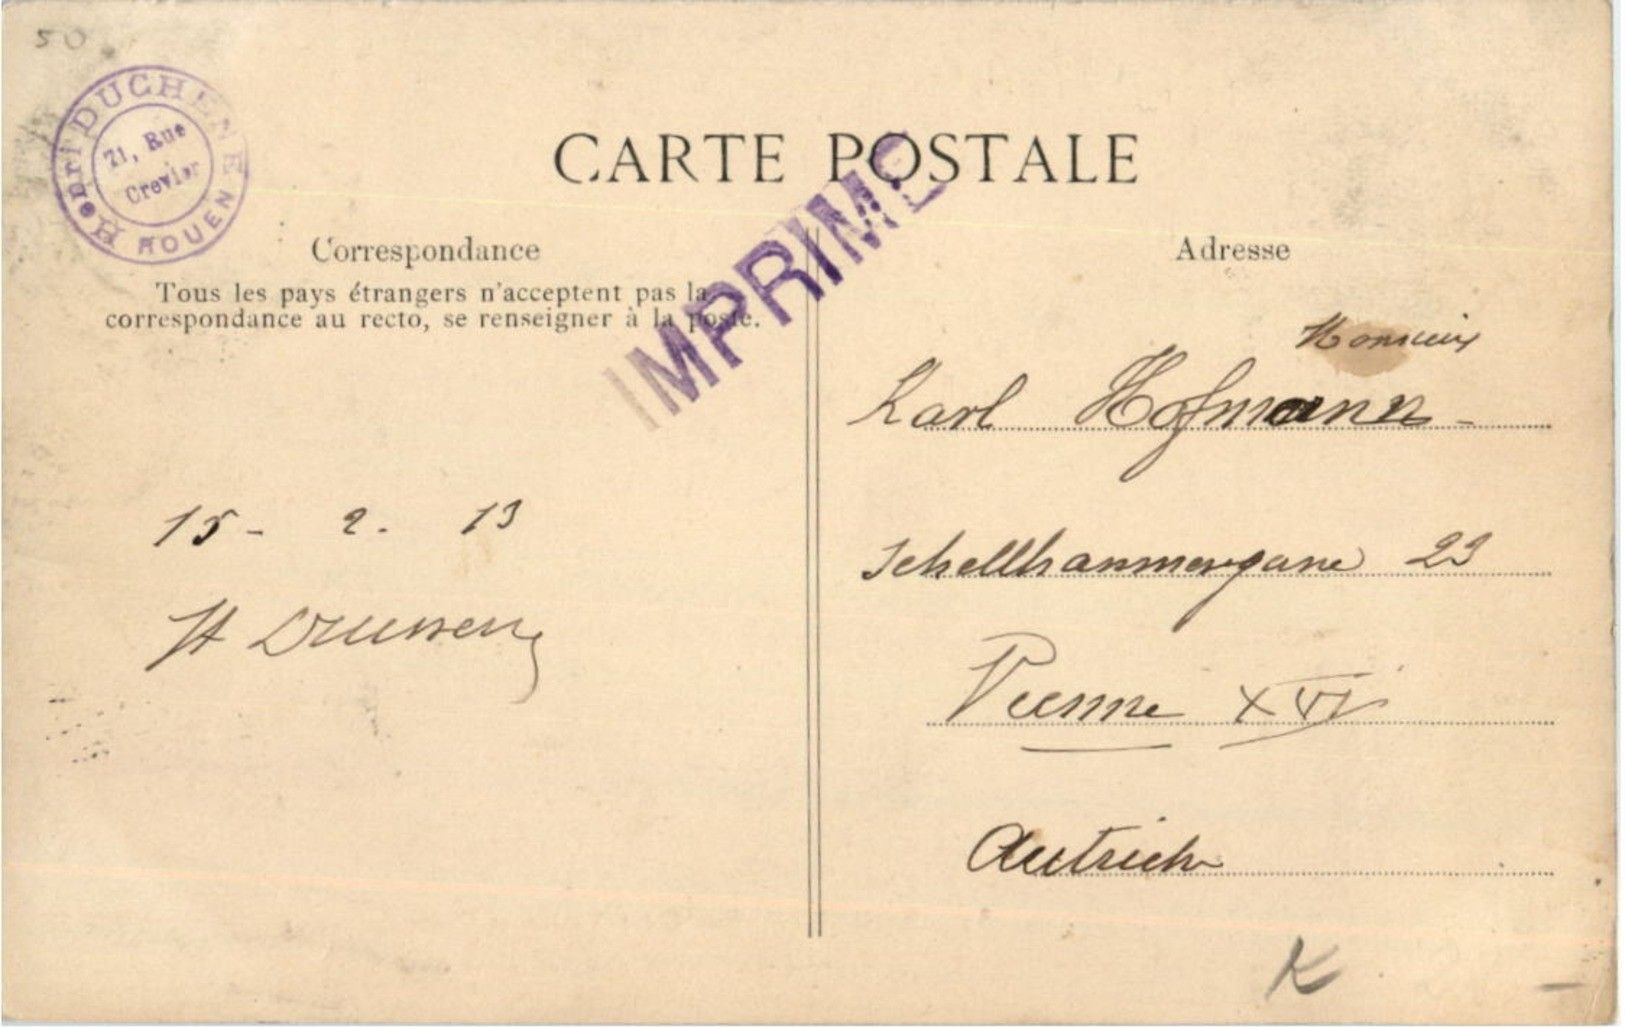 50
Henri DUCHENE
21, Rue
Crevier
ROUEN
CARTE POSTALE
IMPRIMÉ
Correspondance
Tous les pays étrangers n'acceptent pas la
correspondance au recto, se renseigner à la poste.
15 - 2 - 13
H
Adresse
Monsieur
Karl Hofmann
Schellhammergasse 23
Vienne XVI
Autriche
K